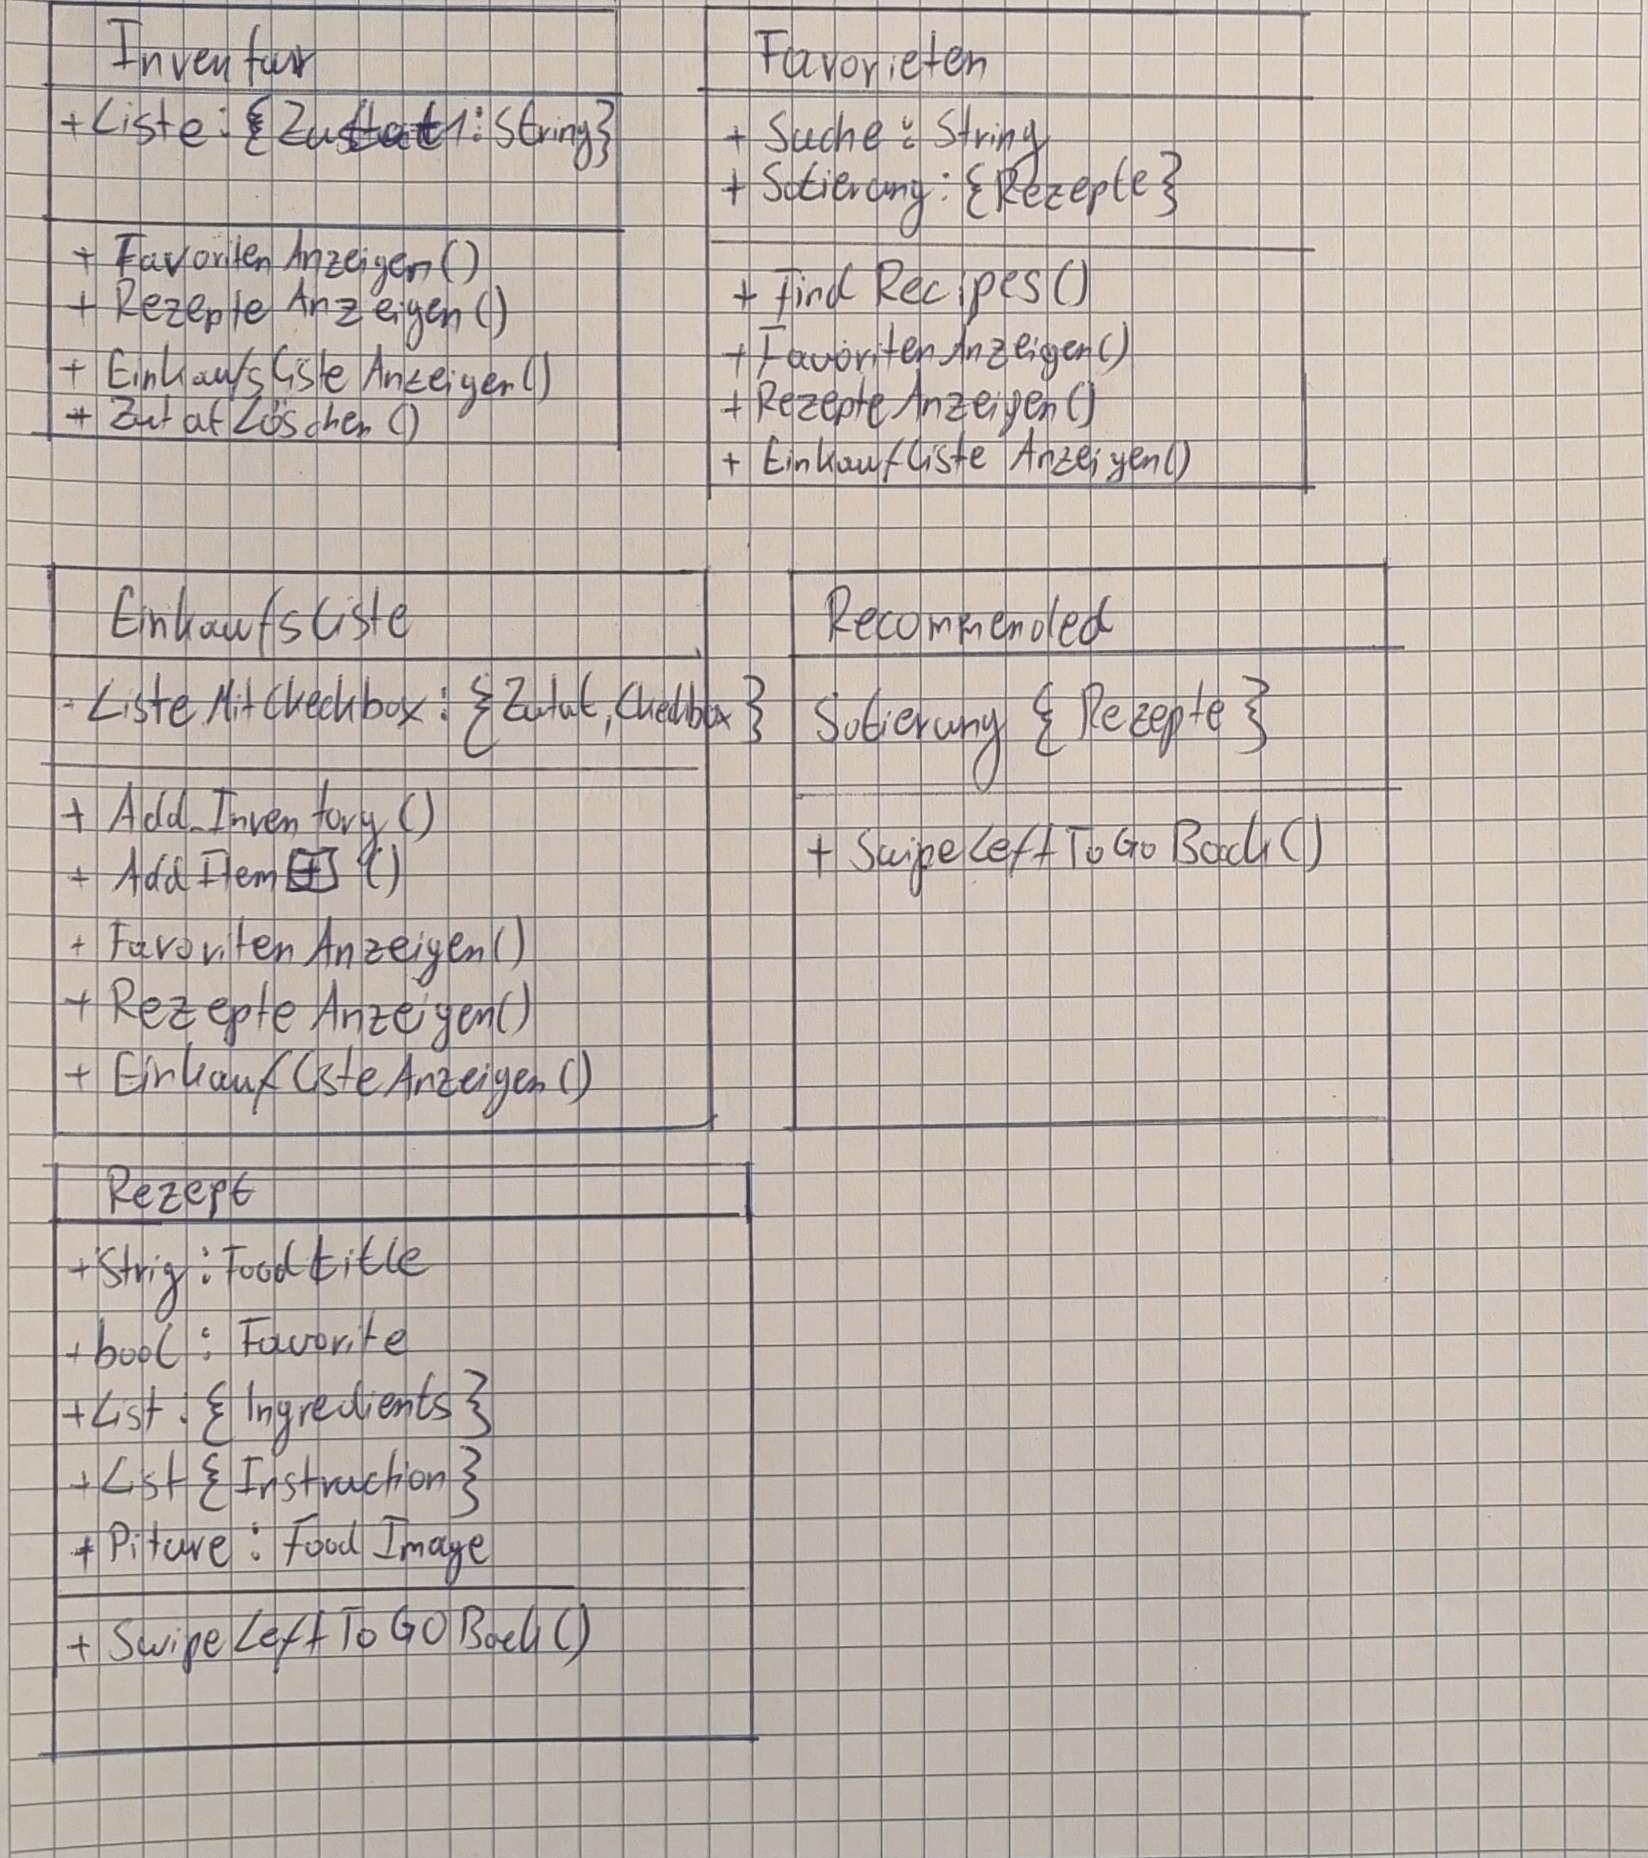 Inventar
+ Liste: {Zutat1: String}
+ Favoriten Anzeigen()
+ Rezepte Anzeigen()
+ Einkaufsliste Anzeigen()
+ Zutat Löschen()
Favorieten
+ Suche: String
+ Sotierung: {Rezepte}
+ Find Recipes()
+ Favoriten Anzeigen()
+ Rezepte Anzeigen()
+ Einkaufliste Anzeigen()
Einkaufsliste
- Liste Mit Checkbox: {Zutat, Checkbox}
+ Add_Inventory()
+ Add Item + ()
+ Favoriten Anzeigen()
+ Rezepte Anzeigen()
+ Einkaufliste Anzeigen()
Recommended
Sotierung {Rezepte}
+ Swipe Left To Go Back()
Rezept
+ Strig: Food title
+ bool: Favorite
+ List: {Ingredients}
+ List {Instruction}
+ Piture: Food Image
+ Swipe Left To GO Back()